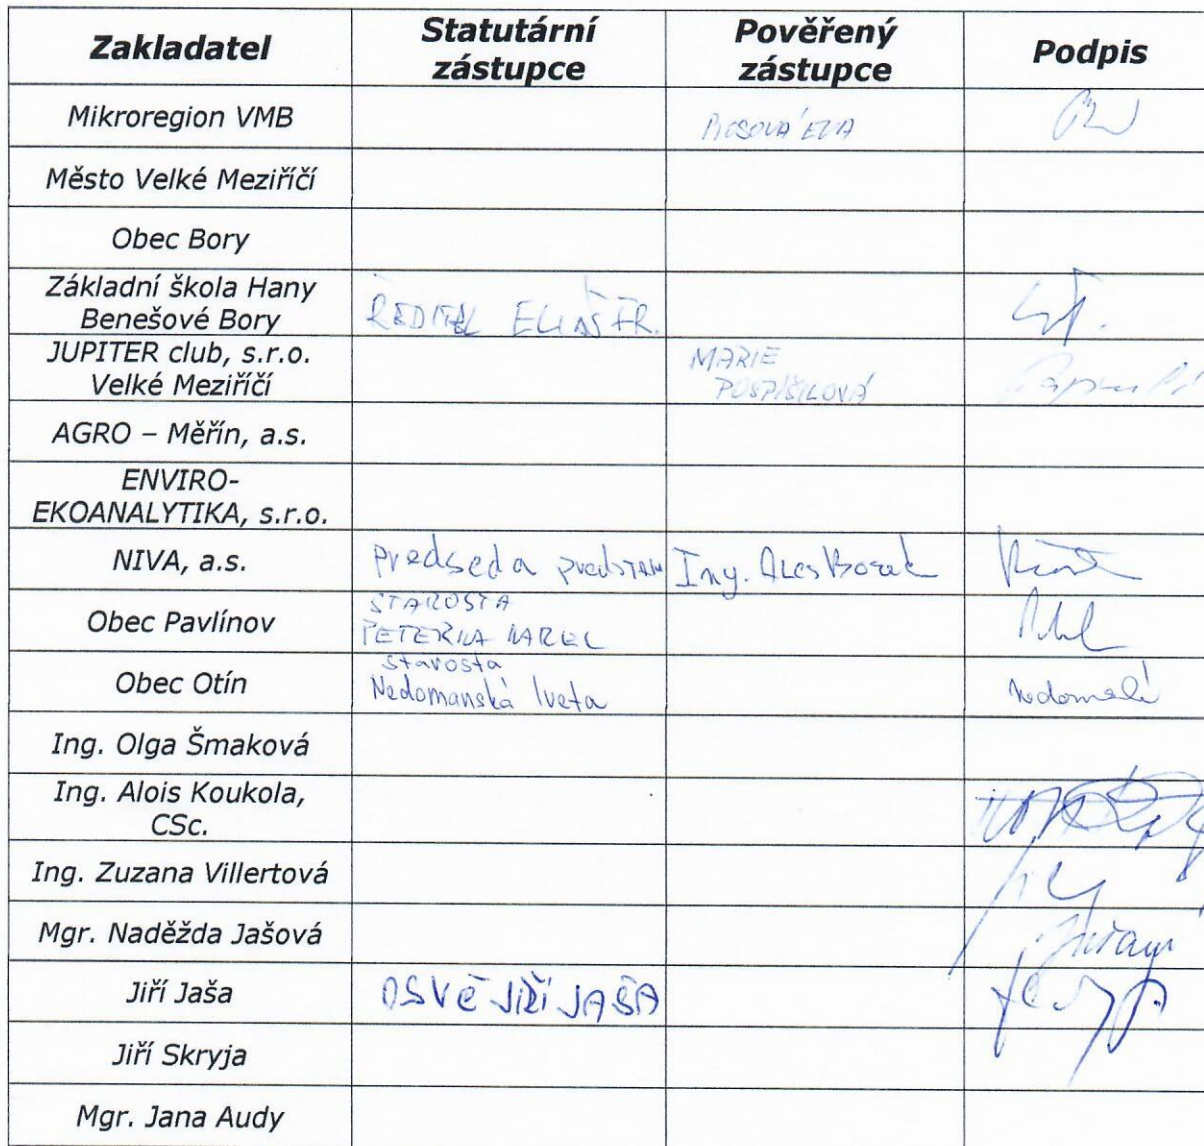 Zakladatel
Statutární
zástupce
Pověřený
zástupce
Podpis
Mikroregion VMB
EVA
Město Velké Meziříčí
Obec Bory
Základní škola Hany
Benešové Bory
ŘEDITEL ELIÁŠ FR.
JUPITER club, s.r.o.
Velké Meziříčí
MARIE
POSPÍŠILOVÁ
AGRO – Měřín, a.s.
ENVIRO-
EKOANALYTIKA, s.r.o.
NIVA, a.s.
předseda představ
Ing.
Obec Pavlínov
STAROSTA
PETERKA KAREL
Obec Otín
starosta
Nedomanská Iveta
Ing. Olga Šmaková
Ing. Alois Koukola,
CSc.
Ing. Zuzana Villertová
Mgr. Naděžda Jašová
Jiří Jaša
OSVČ JIŘÍ JAŠA
Jiří Skryja
Mgr. Jana Audy